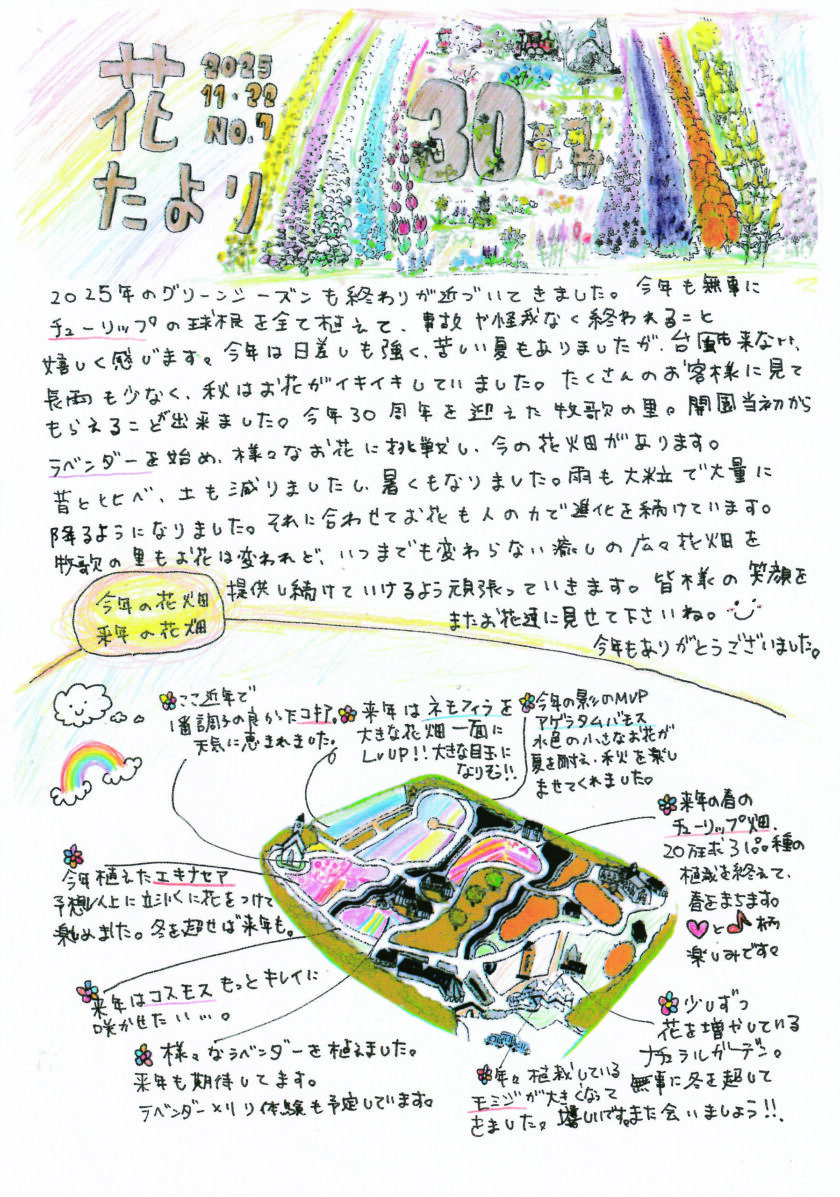 花
たより
2025
11・22
NO.7
30
2025年のグリーンシーズンも終わりが近づいてきました。今年も無事に
チューリップの球根を全て植えて、事故や怪我なく終われること
嬉しく感じます。今年は日差しも強く、苦しい夏もありましたが、台風も来ない、
長雨も少なく、秋はお花がイキイキしていました。たくさんのお客様に見て
もらえること出来ました。今年30周年を迎えた牧歌の里。開園当初から
ラベンダーを始め、様々なお花に挑戦し、今の花畑があります。
昔と比べ、土も減りましたし、暑くもなりました。雨も大粒で大量に
降るようになりました。それに合わせてお花も人の力で進化を続けています。
牧歌の里もお花は変われど、いつまでも変わらない癒しの広々花畑を
提供し続けていけるよう頑張っていきます。皆様の笑顔を
またお花達に見せて下さいね。
今年もありがとうございました。
今年の花畑
来年の花畑
ここ近年で
1番調子の良かったコキア。
天気に恵まれました。
来年はネモフィラを
大きな花畑一面に
LvUP!!大きな目玉に
なりそう!!
今年の影のMVP
アゲラタムバモス
水色の小さなお花が
夏を耐え、秋を楽し
ませてくれました。
来年の春の
チューリップ畑。
20万球
種の
植栽を終えて、
春をまちます。
♥と♪柄
楽しみです。
今年植えたエキナセア
予想以上に立派に花をつけて
楽しみました。冬を超せば来年も。
来年はコスモスもっとキレイに
咲かせたい…。
様々なラベンダーを植えました。
来年も期待してます。
ラベンダーメリリ体験も予定しています。
年々植栽している
モミジが大きくなって
きました。嬉しいです。
少しずつ
花を増やしている
ナチュラルガーデン。
無事に冬を超して
また会いましょう!!